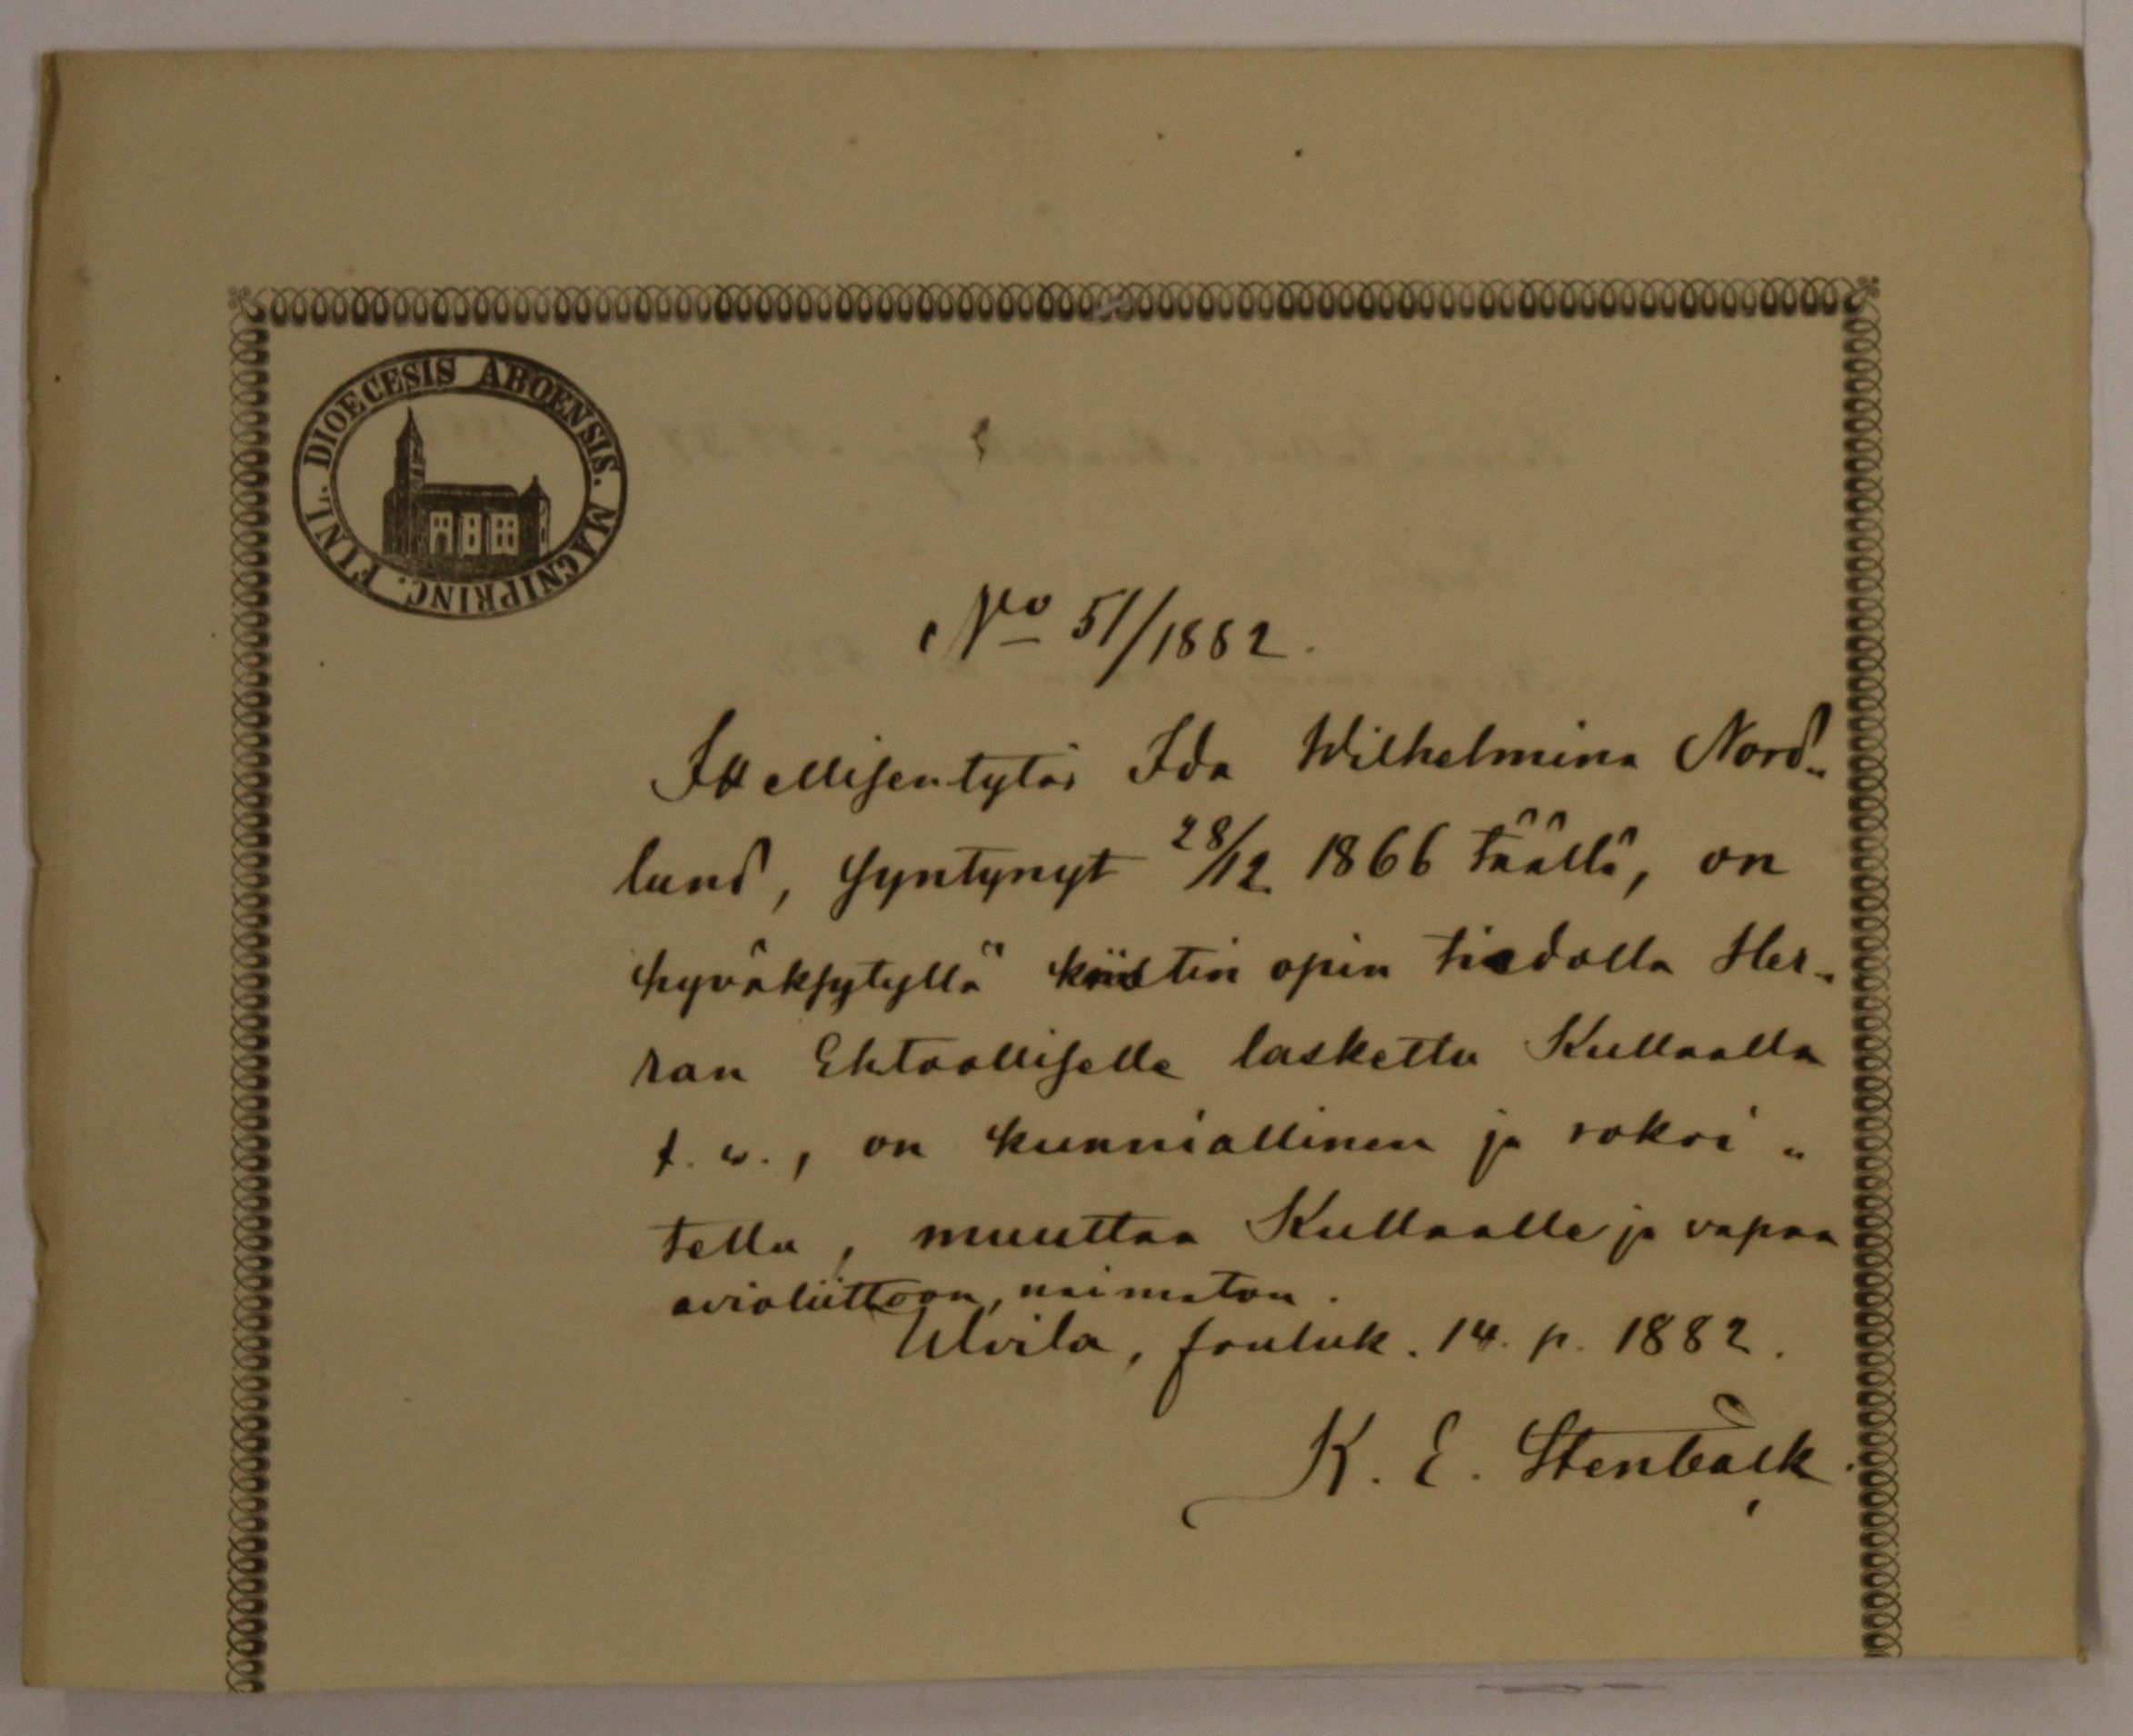 DIOECESIS ABOENSIS. MAGNIPRINC. FINL.
No 51/1882.
Itsellisentytär Ida Wilhelmina Nord„
lund, syntynyt 28/12 1866 täällä, on
hyväksytyllä kristin opin tiedolla Her„
ran Ehtoolliselle laskettu Kullaalla
t. w., on kunniallinen ja rokoi„
tettu, muuttaa Kullaalle ja vapaa
avioliittoon, naimaton.
Ulvila, Jouluk. 14. p. 1882.
K. E. Stenbäck.